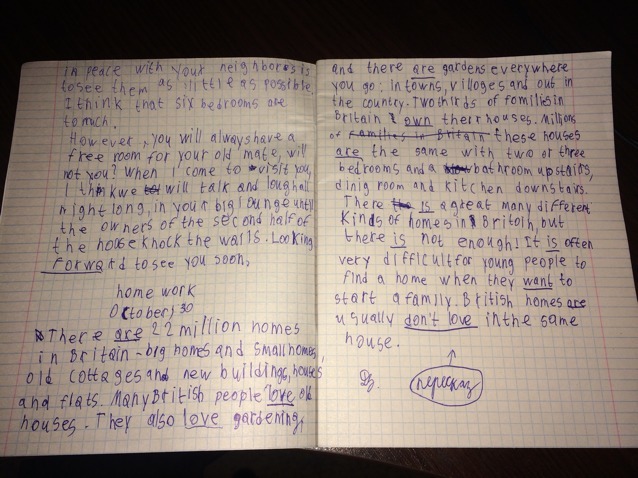 in peace with your neighbors is
to see them as little as possible.
I think that six bedrooms are
to much.
However, you will always have a
free room for your old mate, will
not you? When I come to visit you,
I think we will talk and laugh all
night long, in your big lounge until
the owners of the second half of
the house knock the walls. Looking
forward to see you soon,
home work
October, 30
There are 22 million homes
in Britain - big homes and small homes,
old cottages and new buildings, houses
and flats. Many British people love old
houses. They also love gardening,
and there are gardens everywhere
you go: in towns, villoges and out in
the country. Two thirds of fomilies in
Britain own their houses. Millions
of families in Britain these houses
are the same with two or three
bedrooms and a bathroom upstairs,
dinig room and kitchen downstairs.
There is a great many different
kinds of homes in Britoin, but
there is not enough! It is often
very difficult for young people to
find a home when they want to
start a family. British homes are
usually don't love in the same
house.
Дз. пересказ